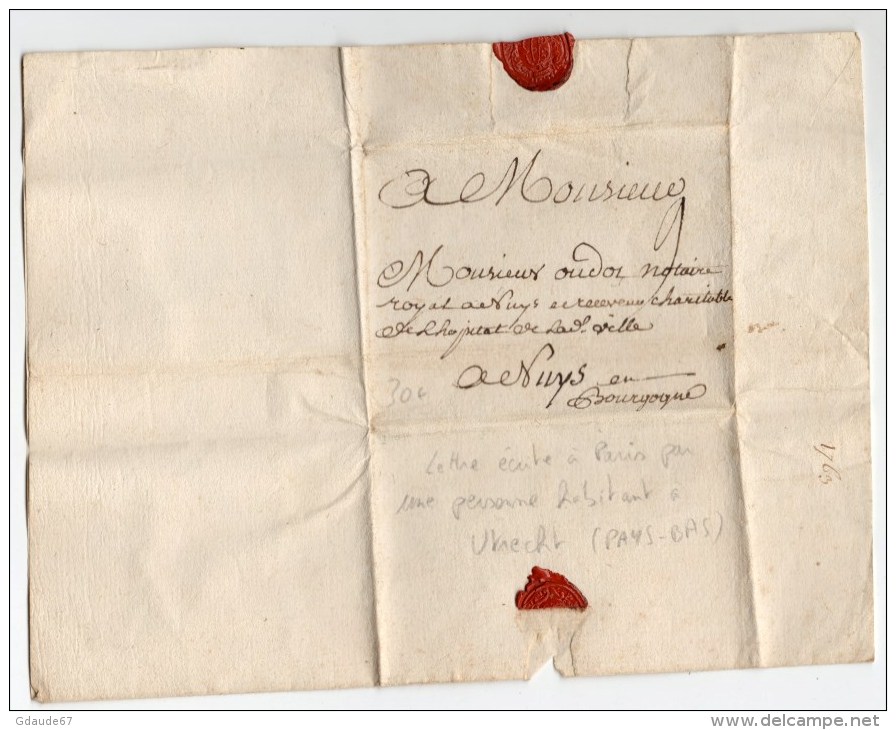 A Monsieur
Monsieur oudot notaire
royal a Nuys et receveur charitable
de Lhopital de lad. ville
a Nuys en
Bourgogne
30€
Lettre écrite à Paris par
une personne habitant à
Utrecht (PAYS-BAS)
1763
Gdaude67
www.delcampe.net